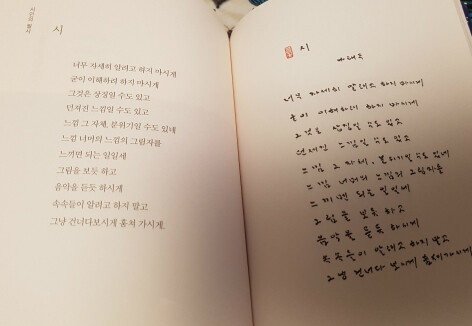 시인의 필사
시
너무 자세히 알려고 하지 마시게
굳이 이해하려 하지 마시게
그것은 상징일 수도 있고
던져진 느낌일 수도 있고
느낌 그 자체, 분위기일 수도 있네
느낌 너머의 느낌의 그림자를
느끼면 되는 일일세
그림을 보듯 하고
음악을 듣듯 하시게
속속들이 알려고 하지 말고
그냥 건너다보시게 훔쳐 가시게.
시
나태주
너무 자세히 알려고 하지 마시게
굳이 이해하려 하지 마시게
그것은 상징일 수도 있고
던져진 느낌일 수도 있고
느낌 그 자체, 분위기일 수도 있네
느낌 너머의 느낌의 그림자를
느끼면 되는 일일세
그림을 보듯 하고
음악을 듣듯 하시게
속속들이 알려고 하지 말고
그냥 건너다 보시게 훔쳐가시게